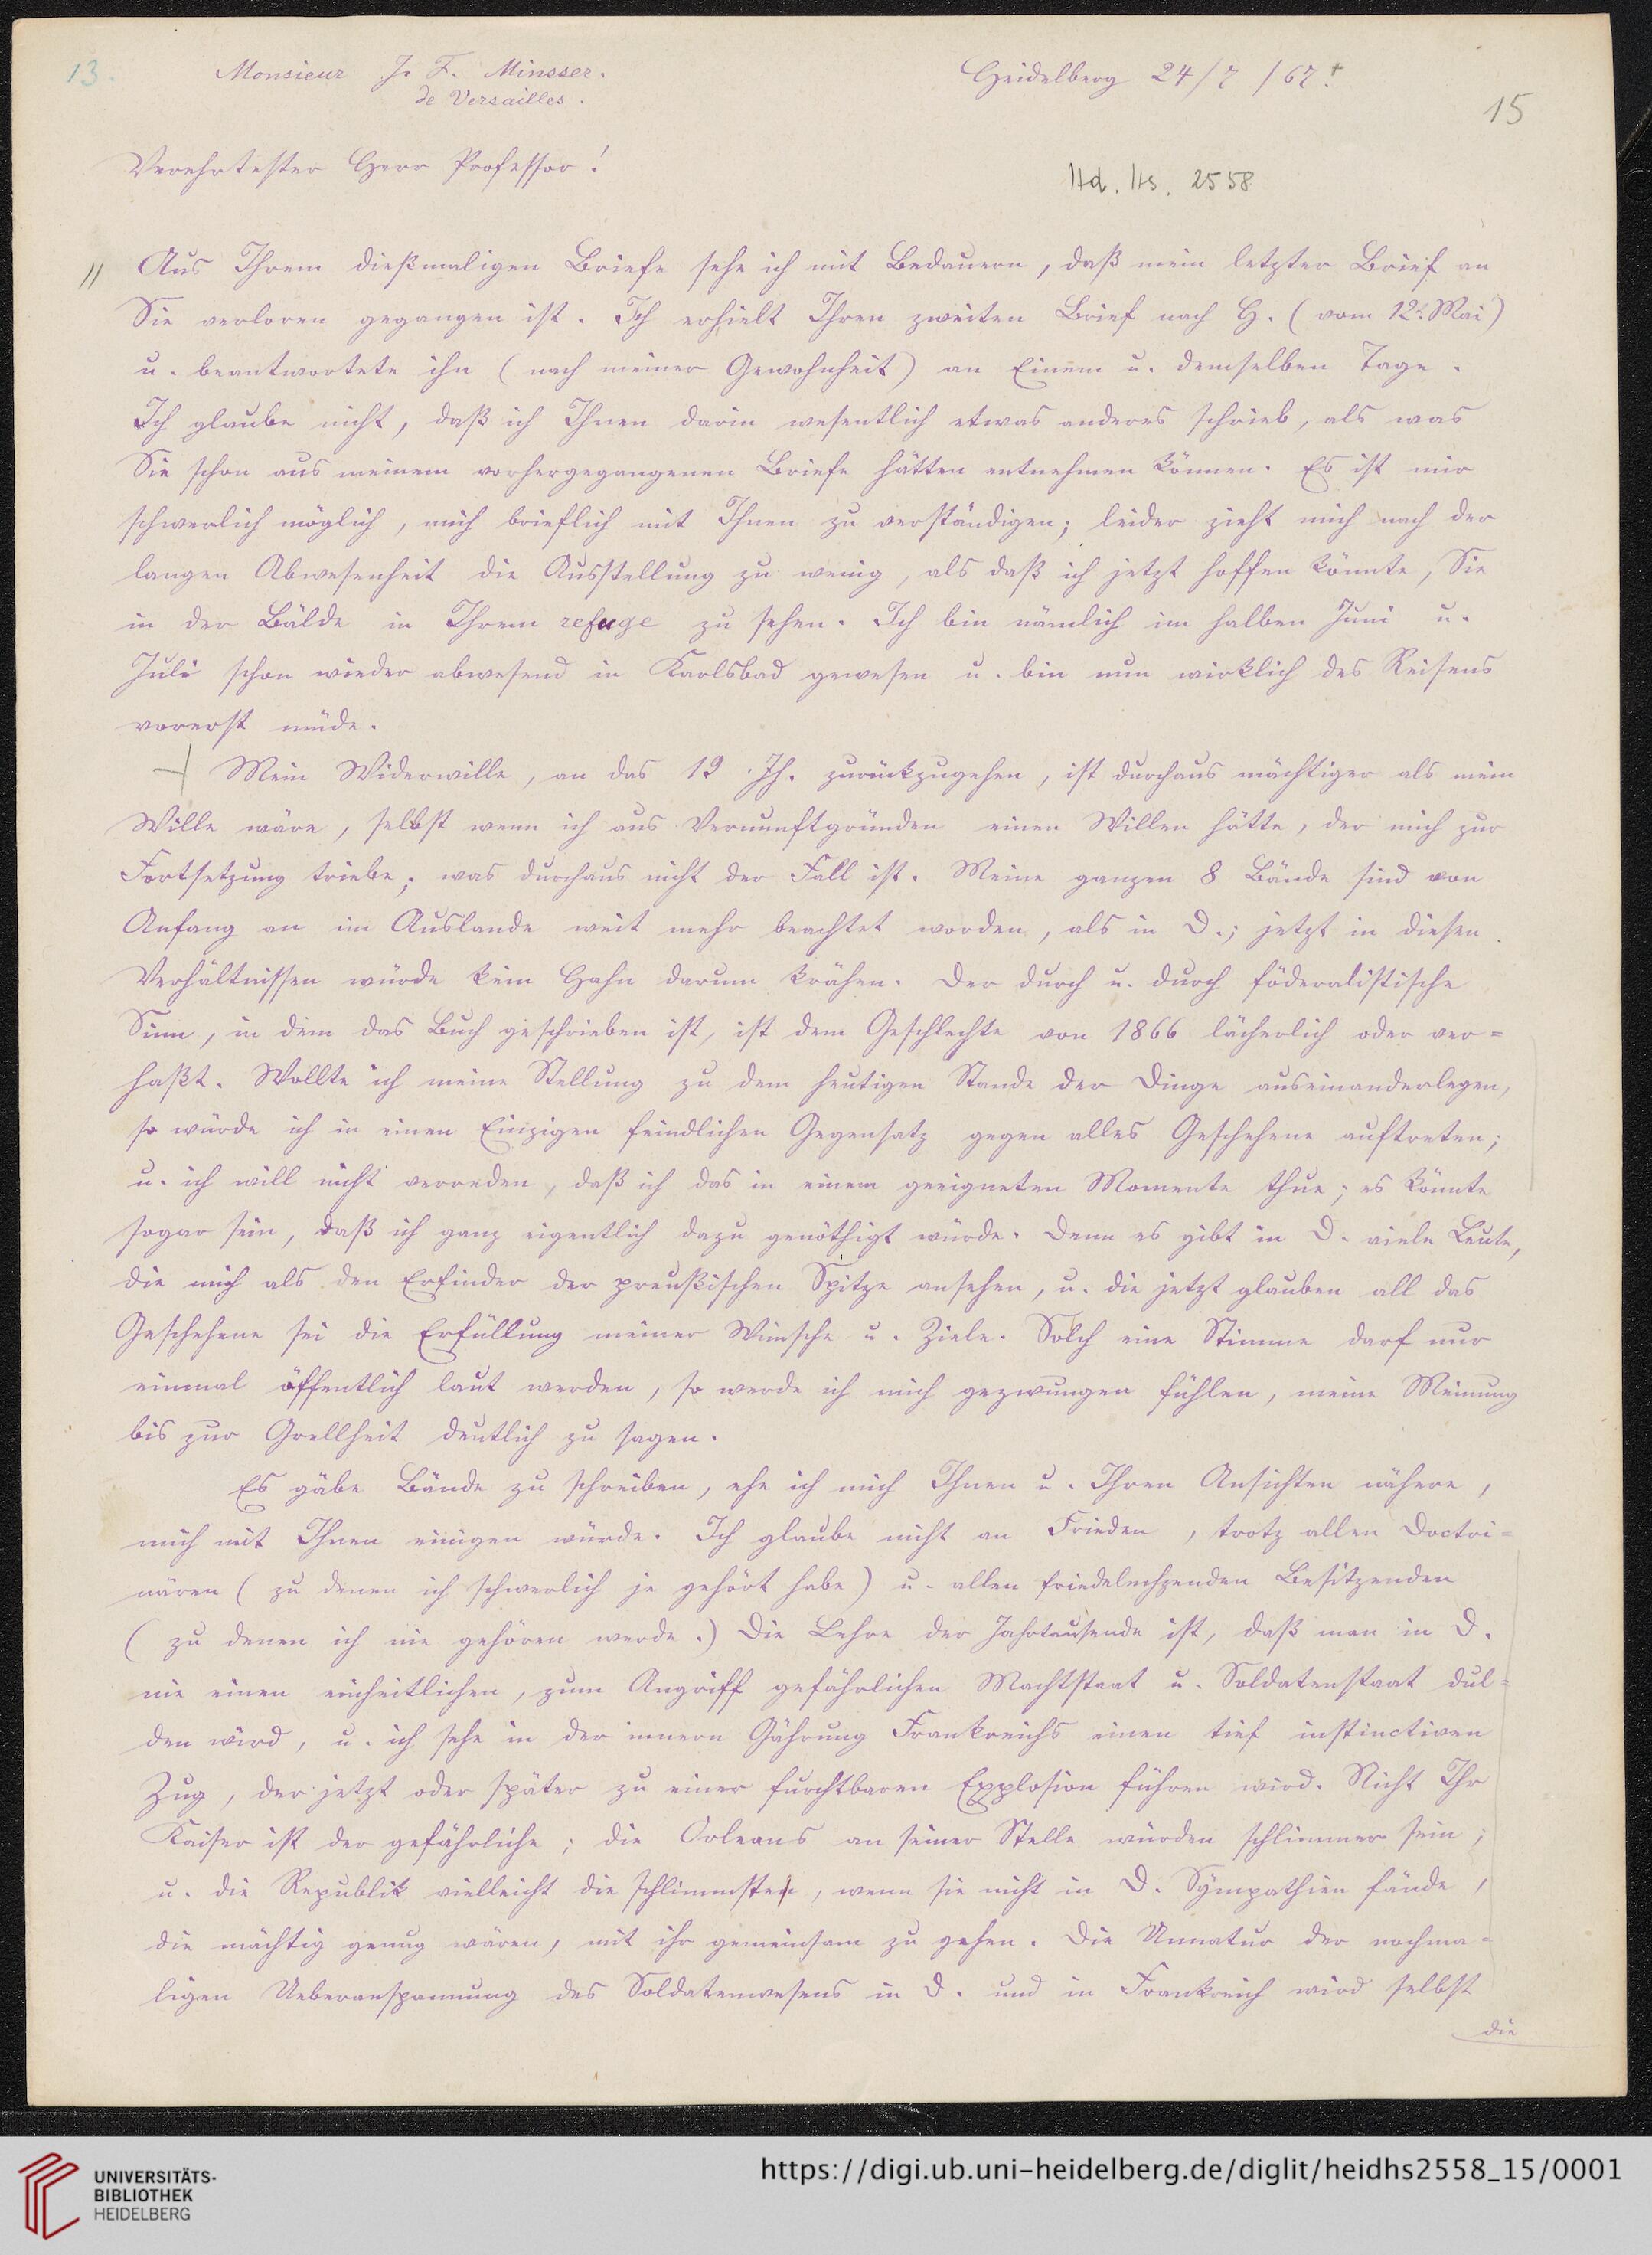 13.
Monsieur J. F. Minsser.
de Versailles.
Heidelberg 24/7 /67.
15
Verehrtester Herr Professor!
Hd. Hs. 2558
Aus Ihrem dießmaligen Briefe sehe ich mit Bedauern, daß mein letzter Brief an
Sie verloren gegangen ist. Ich erhielt Ihren zweiten Brief nach H. (vom 12t. Mai)
u. beantwortete ihn (nach meiner Gewohnheit) an Einem u. demselben Tage.
Ich glaube nicht, daß ich Ihnen darin wesentlich etwas anderes schrieb, als was
Sie schon aus meinem vorhergegangenen Briefe hätten entnehmen können. Es ist mir
schwerlich möglich, mich brieflich mit Ihnen zu verständigen; leider zieht mich nach der
langen Abwesenheit die Ausstellung zu wenig, als daß ich jetzt hoffen könnte, Sie
in der Bälde in Ihrem refuge zu sehen. Ich bin nämlich im halben Juni u.
Juli schon wieder abwesend in Karlsbad gewesen u. bin nun wirklich des Reisens
vorerst müde.
Mein Widerwille, an das 19 Jh. zurückzugehen, ist durchaus mächtiger als mein
Wille wäre, selbst wenn ich aus Vernunftgründen einen Willen hätte, der mich zur
Fortsetzung triebe; was durchaus nicht der Fall ist. Meine ganzen 8 Bände sind von
Anfang an im Auslande weit mehr beachtet worden, als in D.; jetzt in diesen
Verhältnissen würde kein Hahn darum krähen. Der durch u. durch föderalistische
Sinn, in dem das Buch geschrieben ist, ist dem Geschlechte von 1866 lächerlich oder ver=
haßt. Wollte ich meine Stellung zu dem heutigen Stande der Dinge auseinanderlegen,
so würde ich in einen Einzigen feindlichen Gegensatz gegen alles Geschehene auftreten;
u. ich will nicht verreden, daß ich das in einem geeigneten Momente thue; es könnte
sogar sein, daß ich ganz eigentlich dazu genöthigt würde. Denn es gibt in D. viele Leute,
die mich als den Erfinder der preußischen Spitze ansehen, u. die jetzt glauben all das
Geschehene sei die Erfüllung meiner Wünsche u. Ziele. Solch eine Stimme darf nur
einmal öffentlich laut werden, so werde ich mich gezwungen fühlen, meine Meinung
bis zur Grellheit deutlich zu sagen.
Es gäbe Bände zu schreiben, ehe ich mich Ihnen u. Ihren Ansichten nähere,
mich mit Ihnen einigen würde. Ich glaube nicht an Frieden, trotz allen Doctri=
nären (zu denen ich schwerlich je gehört habe) u. allen friedelechzenden Besitzenden
(zu denen ich nie gehören werde.) Die Lehre der Jahrtausende ist, daß man in D.
nie einen einheitlichen, zum Angriff gefährlichen Machtstaat u. Soldatenstaat dul=
den wird, u. ich sehe in der innern Gährung Frankreichs einen tief instinctiven
Zug, der jetzt oder später zu einer furchtbaren Explosion führen wird. Nicht Ihr
Kaiser ist der gefährliche; die Orleans an seiner Stelle würden schlimmer sein;
u. die Republik vielleicht die schlimmste, wenn sie nicht in D. Sympathien fände,
die mächtig genug wären, mit ihr gemeinsam zu gehen. Die Unnatur der nochma=
ligen Ueberanspannung des Soldatenwesens in D. und in Frankreich wird selbst
die
UNIVERSITÄTS-
BIBLIOTHEK
HEIDELBERG
https://digi.ub.uni-heidelberg.de/diglit/heidhs2558_15/0001